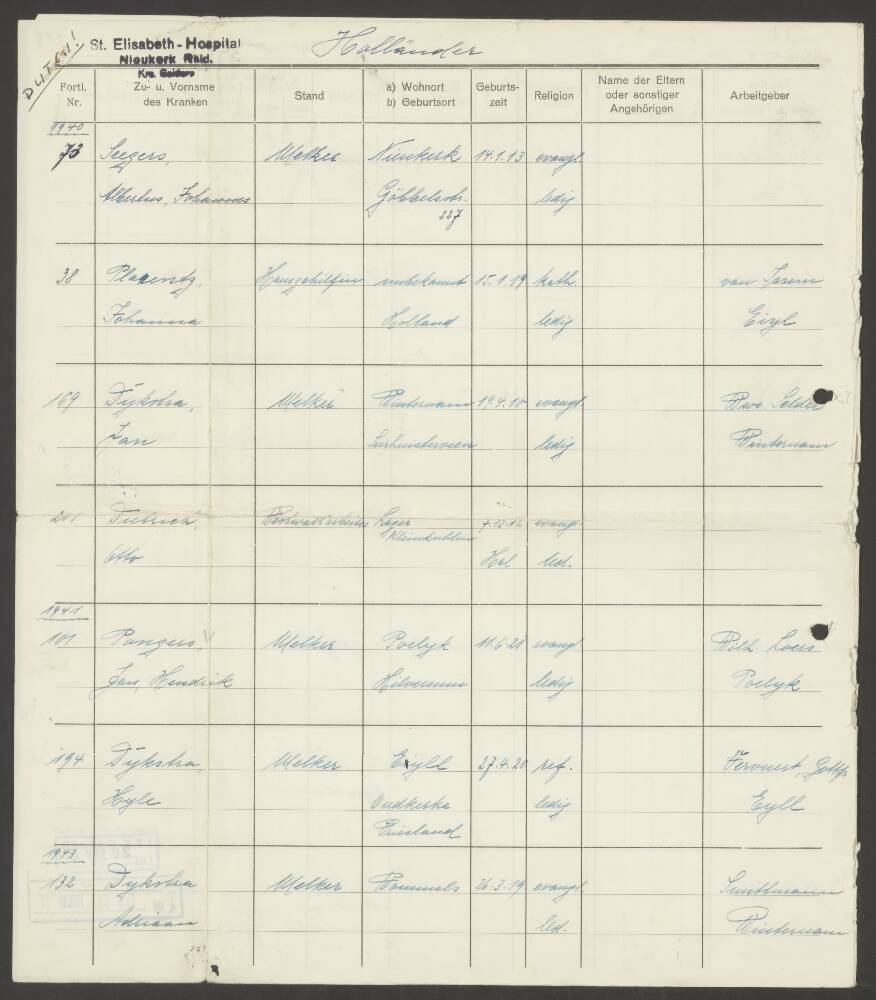 DUTCH!
St. Elisabeth-Hospital
Nieukerk Rhld.
Krs. Geldern
Holländer
Fortl. Nr.
Zu- u. Vorname des Kranken
Stand
a) Wohnort b) Geburtsort
Geburts-zeit
Religion
Name der Eltern oder sonstiger Angehörigen
Arbeitgeber
1940
73 Seegers, Melker Nieukerk 14.1.13 evangl.
Albertus, Johannes ledig
227
38 Hausgehilfin unbekannt 15.1.19 kath. van
Johanna Holland ledig Eyl
169 Dykstra, Melker Winternam 19.4.10 evangl. Wwe.
Jan ledig Winternam
201 Lager 7.12.12 evangl.
Otto Hol led.
1941
101 Melker Poelyk 11.6.21 evangl. Wilh. Loers
Jan, Hendrik Hilversum ledig Poelyk
194 Dykstra, Melker Eyll 27.4.20 ref.
Hyle Oudkerke ledig Eyll
Friesland
1943
132 Dykstra Melker 26.3.19 evangl.
Adriaan led. Winternam